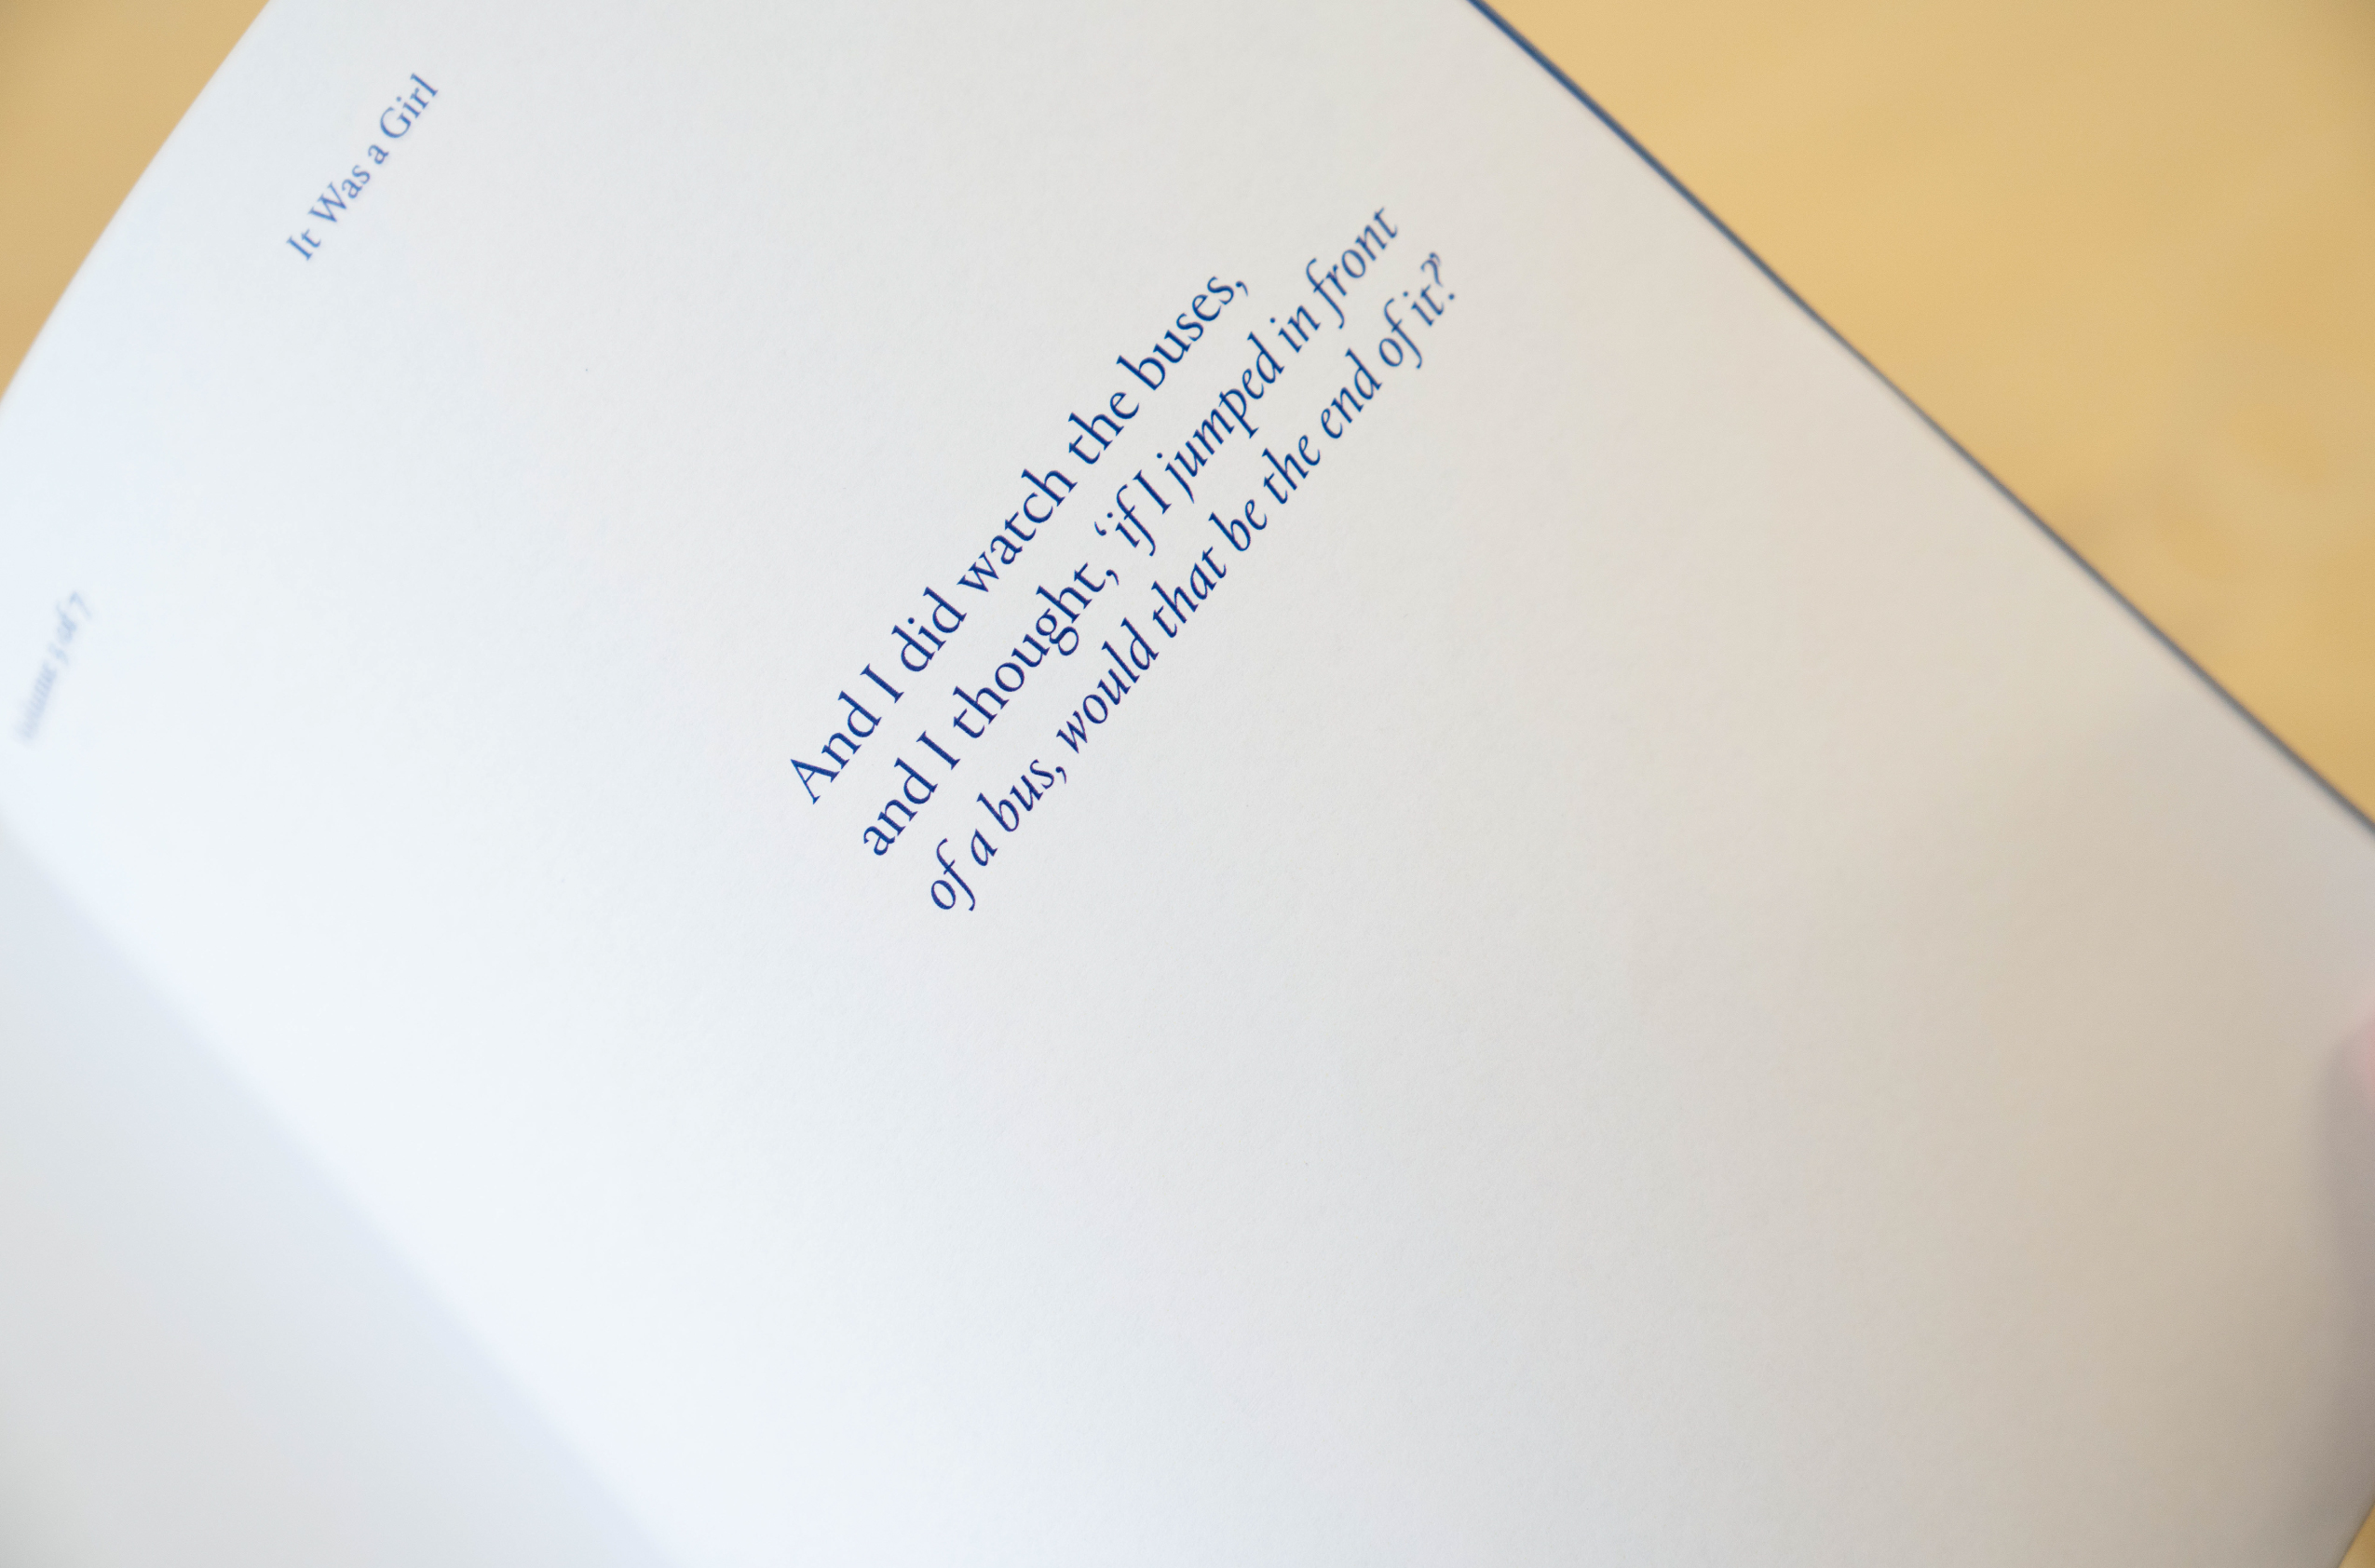 It Was a Girl
And I did watch the buses,
and I thought, ‘if I jumped in front
of a bus, would that be the end of it?’
volume 3 of 7